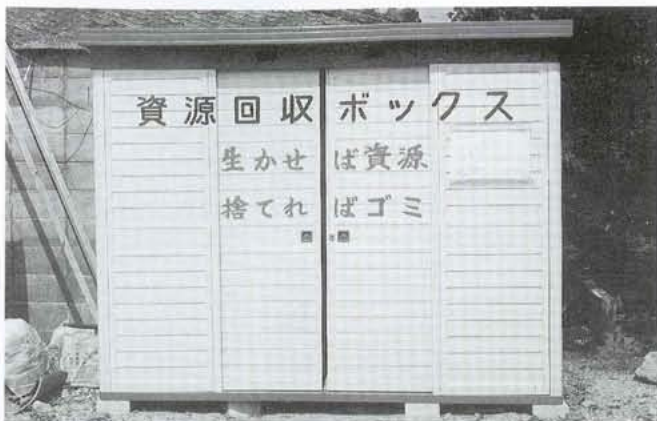 資源回収ボックス
生かせば資源
捨てればゴミ